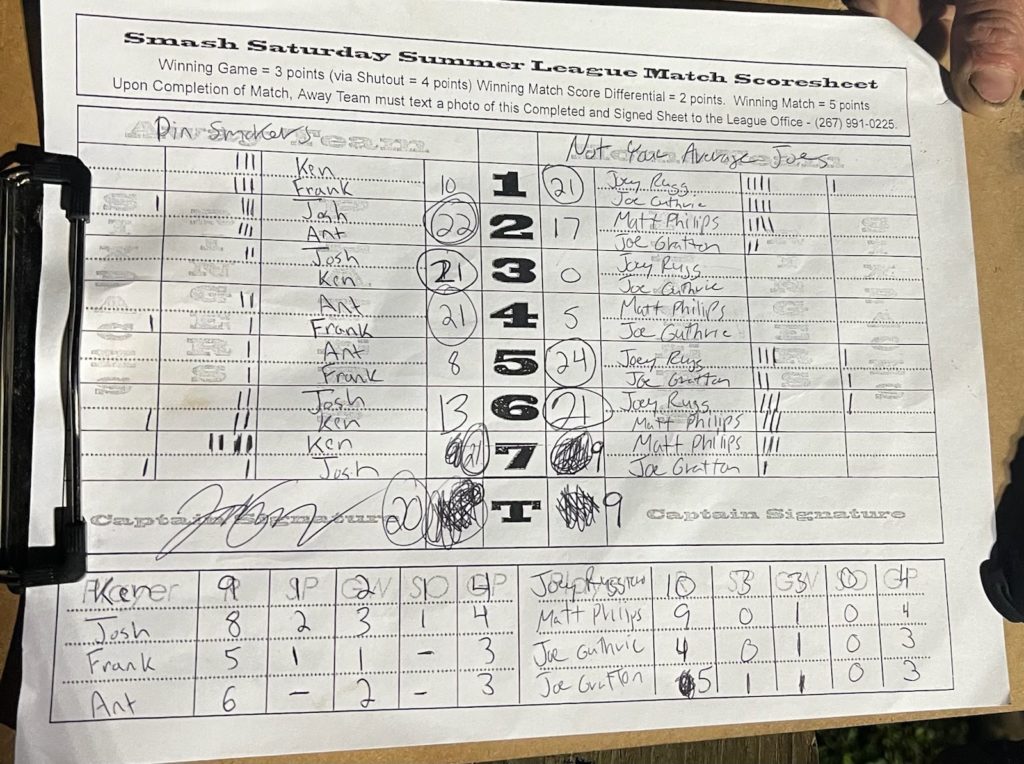 Smash Saturday Summer League Match Scoresheet
Winning Game = 3 points (via Shutout = 4 points) Winning Match Score Differential = 2 points. Winning Match = 5 points
Upon Completion of Match, Away Team must text a photo of this Completed and Signed Sheet to the League Office - (267) 991-0225.
Pin Smokers Not Your Average Joes
Ken 10 1 21 Joey Russ
Frank Joe Guthrie
Josh 22 2 17 Matt Philips
Ant Joe Gratton
Josh 21 3 0 Joey Russ
Ken Joe Guthrie
Ant 21 4 5 Matt Philips
Frank Joe Guthrie
Ant 8 5 24 Joey Russ
Frank Joe Gratton
Josh 13 6 21 Joey Russ
Ken Matt Philips
Ken 21 7 9 Matt Philips
Josh Joe Gratton
Captain Signature 20 T 9 Captain Signature
Ken 9 1 2 1 4 10 3 3 0 4
Josh 8 2 3 1 4 Matt Philips 9 0 1 0 4
Frank 5 1 1 - 3 Joe Guthrie 4 0 1 0 3
Ant 6 - 2 - 3 Joe Gratton 5 1 1 0 3